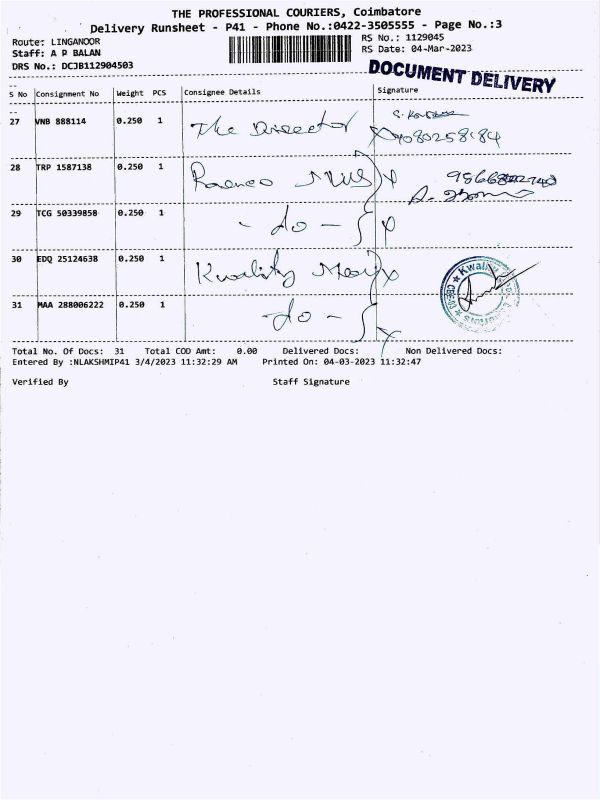 THE PROFESSIONAL COURIERS, Coimbatore
Delivery Runsheet - P41 - Phone No.:0422-3505555 - Page No.:3
Route: LINGANOOR
RS No.: 1129045
Staff: A P BALAN
RS Date: 04-Mar-2023
DRS No.: DCJB112904503
DOCUMENT DELIVERY
S No Consignment No Weight PCS Consignee Details Signature
27 VNB 888114 0.250 1 The Director
28 TRP 1587138 0.250 1
29 TCG 50339858 0.250 1 - do -
30 EDQ 25124638 0.250 1 Kwality
31 MAA 288006222 0.250 1 - do -
Kwality
Total No. Of Docs: 31 Total COD Amt: 0.00 Delivered Docs: Non Delivered Docs:
Entered By :NLAKSHMIP41 3/4/2023 11:32:29 AM Printed On: 04-03-2023 11:32:47
Verified By Staff Signature